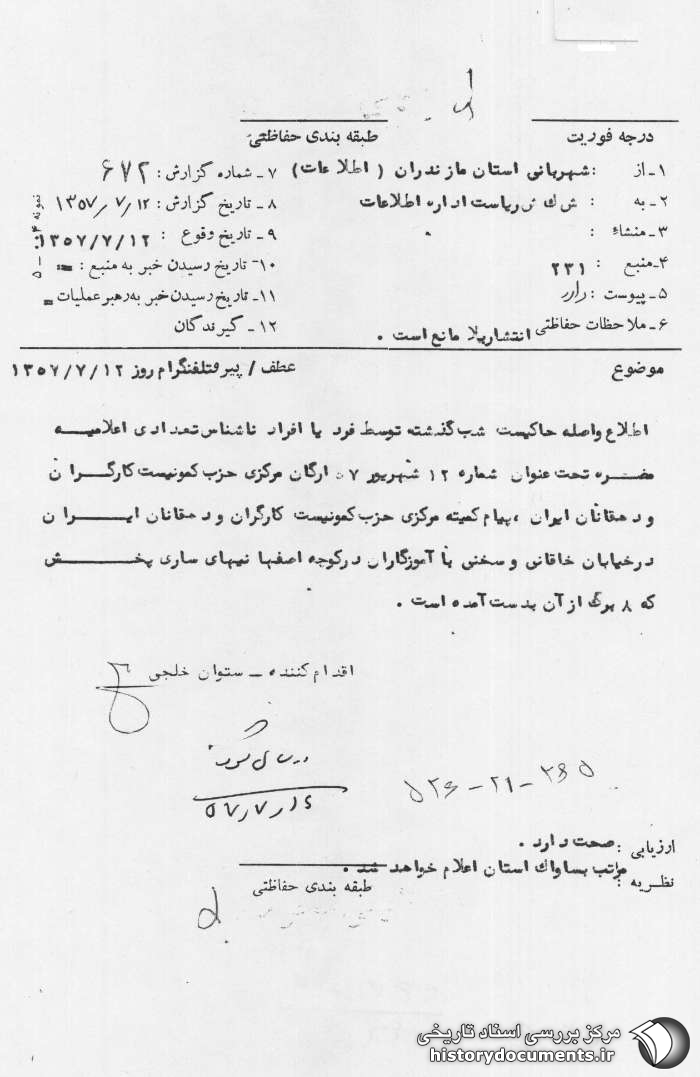 درجه فوریت
طبقه بندی حفاظتی
۱ـ از : شهربانی استان مازندران (اطلاعات)
۷ـ شماره گزارش : ۶۷۲
۲ـ به : ش ك ش ریاست اداره اطلاعات
۸ـ تاریخ گزارش : ۱۳۵۷/۷/۱۲
۳ـ منشاء :
۹ـ تاریخ وقوع : ۱۳۵۷/۷/۱۲
۴ـ منبع : ۲۳۱
۱۰ـ تاریخ رسیدن خبر به منبع : =
۵ـ پیوست : دارد
۱۱ـ تاریخ رسیدن خبر به رهبر عملیات =
۶ـ ملاحظات حفاظتی انتشار بلا مانع است .
۱۲ـ گیرندگان
موضوع
عطف / پیرو تلفنگرام روز ۱۳۵۷/۷/۱۲
اطلاع واصله حاکیست شب گذشته توسط فرد یا افراد ناشناس تعدادی اعلامیه
مضره تحت عنوان شماره ۱۲ شهریور ۵۷ ارگان مرکزی حزب کمونیست کارگران
و دهقانان ایران ، پیام کمیته مرکزی حزب کمونیست کارگران و دهقانان ایران
در خیابان خاقانی و سخنی با آموزگاران در کوچه اصفهانیهای ساری پخش
که ۸ برگ از آن بدست آمده است .
اقدام کننده ـ ستوان خلجی
۵۷/۷/۱۶
۵۲۶-۲۱-۳۶۵
ارزیابی : صحت دارد .
نظریه : مراتب بساواك استان اعلام خواهد شد .
طبقه بندی حفاظتی
مرکز بررسی اسناد تاریخی
historydocuments.ir